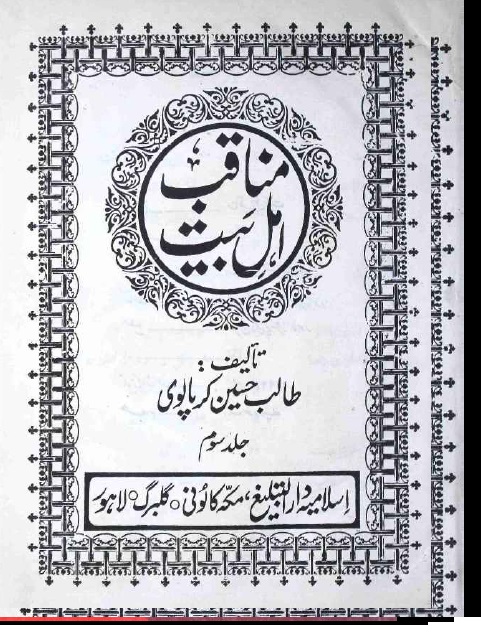 مناقب
اہل بیت
تألیف:
طالب حسین کرپالوی
جلد سوم
اِسلامیہ دارالتبلیغ، مکہ کالونی ○ گلبرگ ○ لاہور